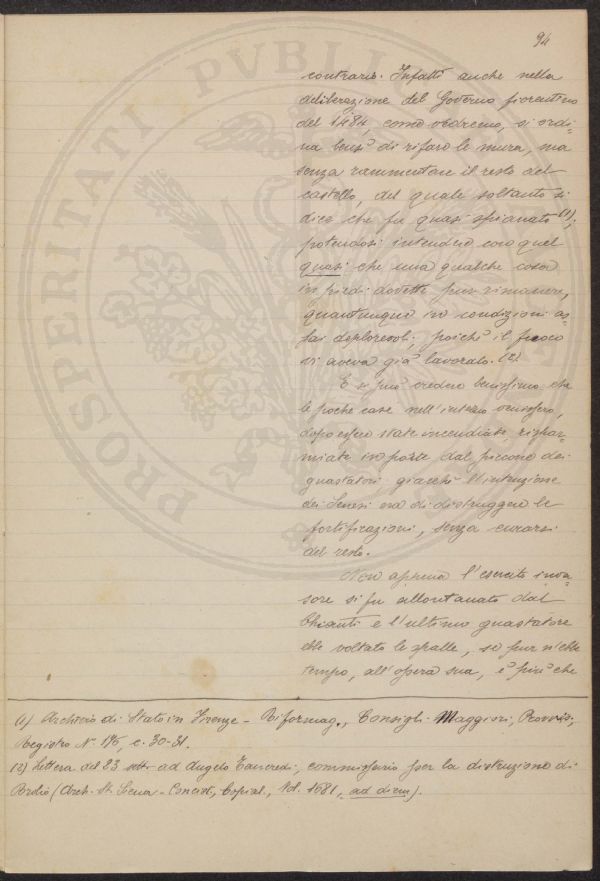 94
contrario. Infatti anche nella
deliberazione del Governo fiorentino
del 1484, come vedremo, si ordi=
na bensì di rifare le mura, ma
senza rammentare il resto del
castello, del quale soltanto si
dice che fu quasi spianato (1);
potendosi intendere con quel
quasi che una qualche cosa
in piedi dovette pur rimanere,
quantunque in condizioni as=
sai deplorevoli, poichè il fuoco
vi aveva già lavorato. (2)
E si può credere benissimo che
le poche case nell'interno venissero,
dopo essere state incendiate, rispar=
miate in parte dal piccone dei
guastatori giacchè l'intenzione
dei Senesi era di distruggere le
fortificazioni, senza curarsi
del resto.
Non appena l'esercito inva=
sore si fu allontanato dal
Chianti e l'ultimo guastatore
ebbe voltato le spalle, se pur n'ebbe
tempo, all'opera sua, è più che
(1) Archivio di Stato in Firenze - Riformag., Consigli Maggiori, Provvis,
Registro N. 176, c. 30-31.
(2) Lettera del 23 sett. ad Angelo Tancredi, commissario per la distruzione di
Brolio (Arch. St. Siena - Concist, Copial., Vol. 1681, ad diem).
PROSPERITATI PVBLIC